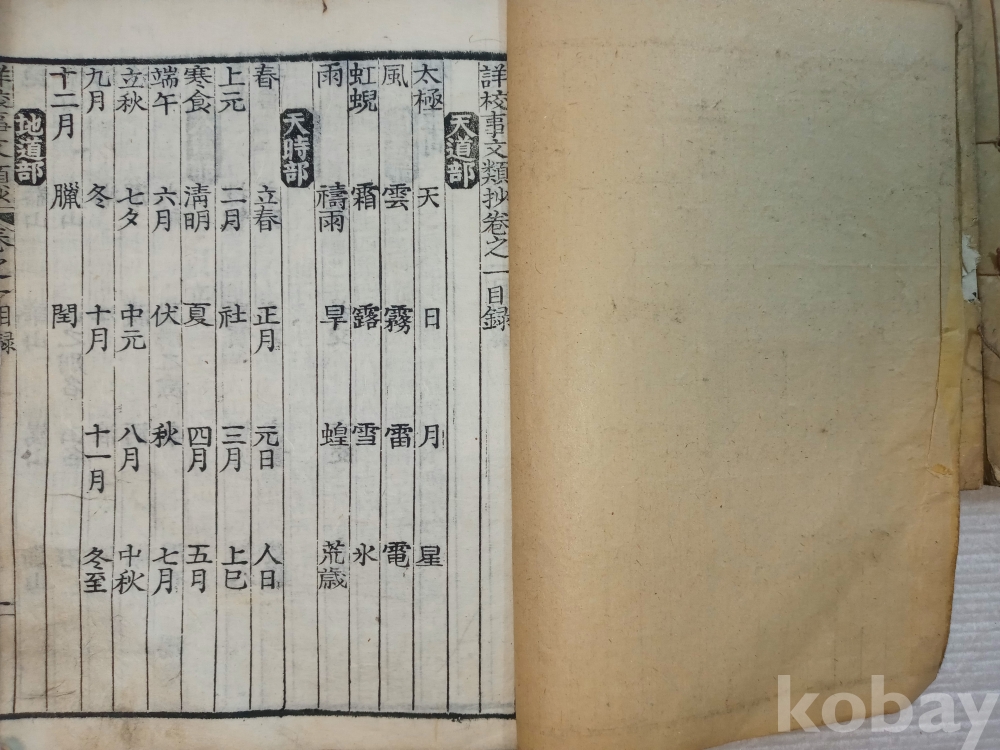 詳校事文類抄卷之一目錄
天道部
太極 天 日 月 星
風 雲 霧 雷 電
虹蜺 霜 露 雪 氷
雨 禱雨 旱 蝗 荒歲
天時部
春 立春 正月 元日 人日
上元 二月 社 三月 上巳
寒食 淸明 夏 四月 五月
端午 六月 伏 秋 七月
立秋 七夕 中元 八月 中秋
九月 冬 十月 十一月 冬至
十二月 臘 閏
地道部
詳校事文類抄 卷之一目錄
一
kobay